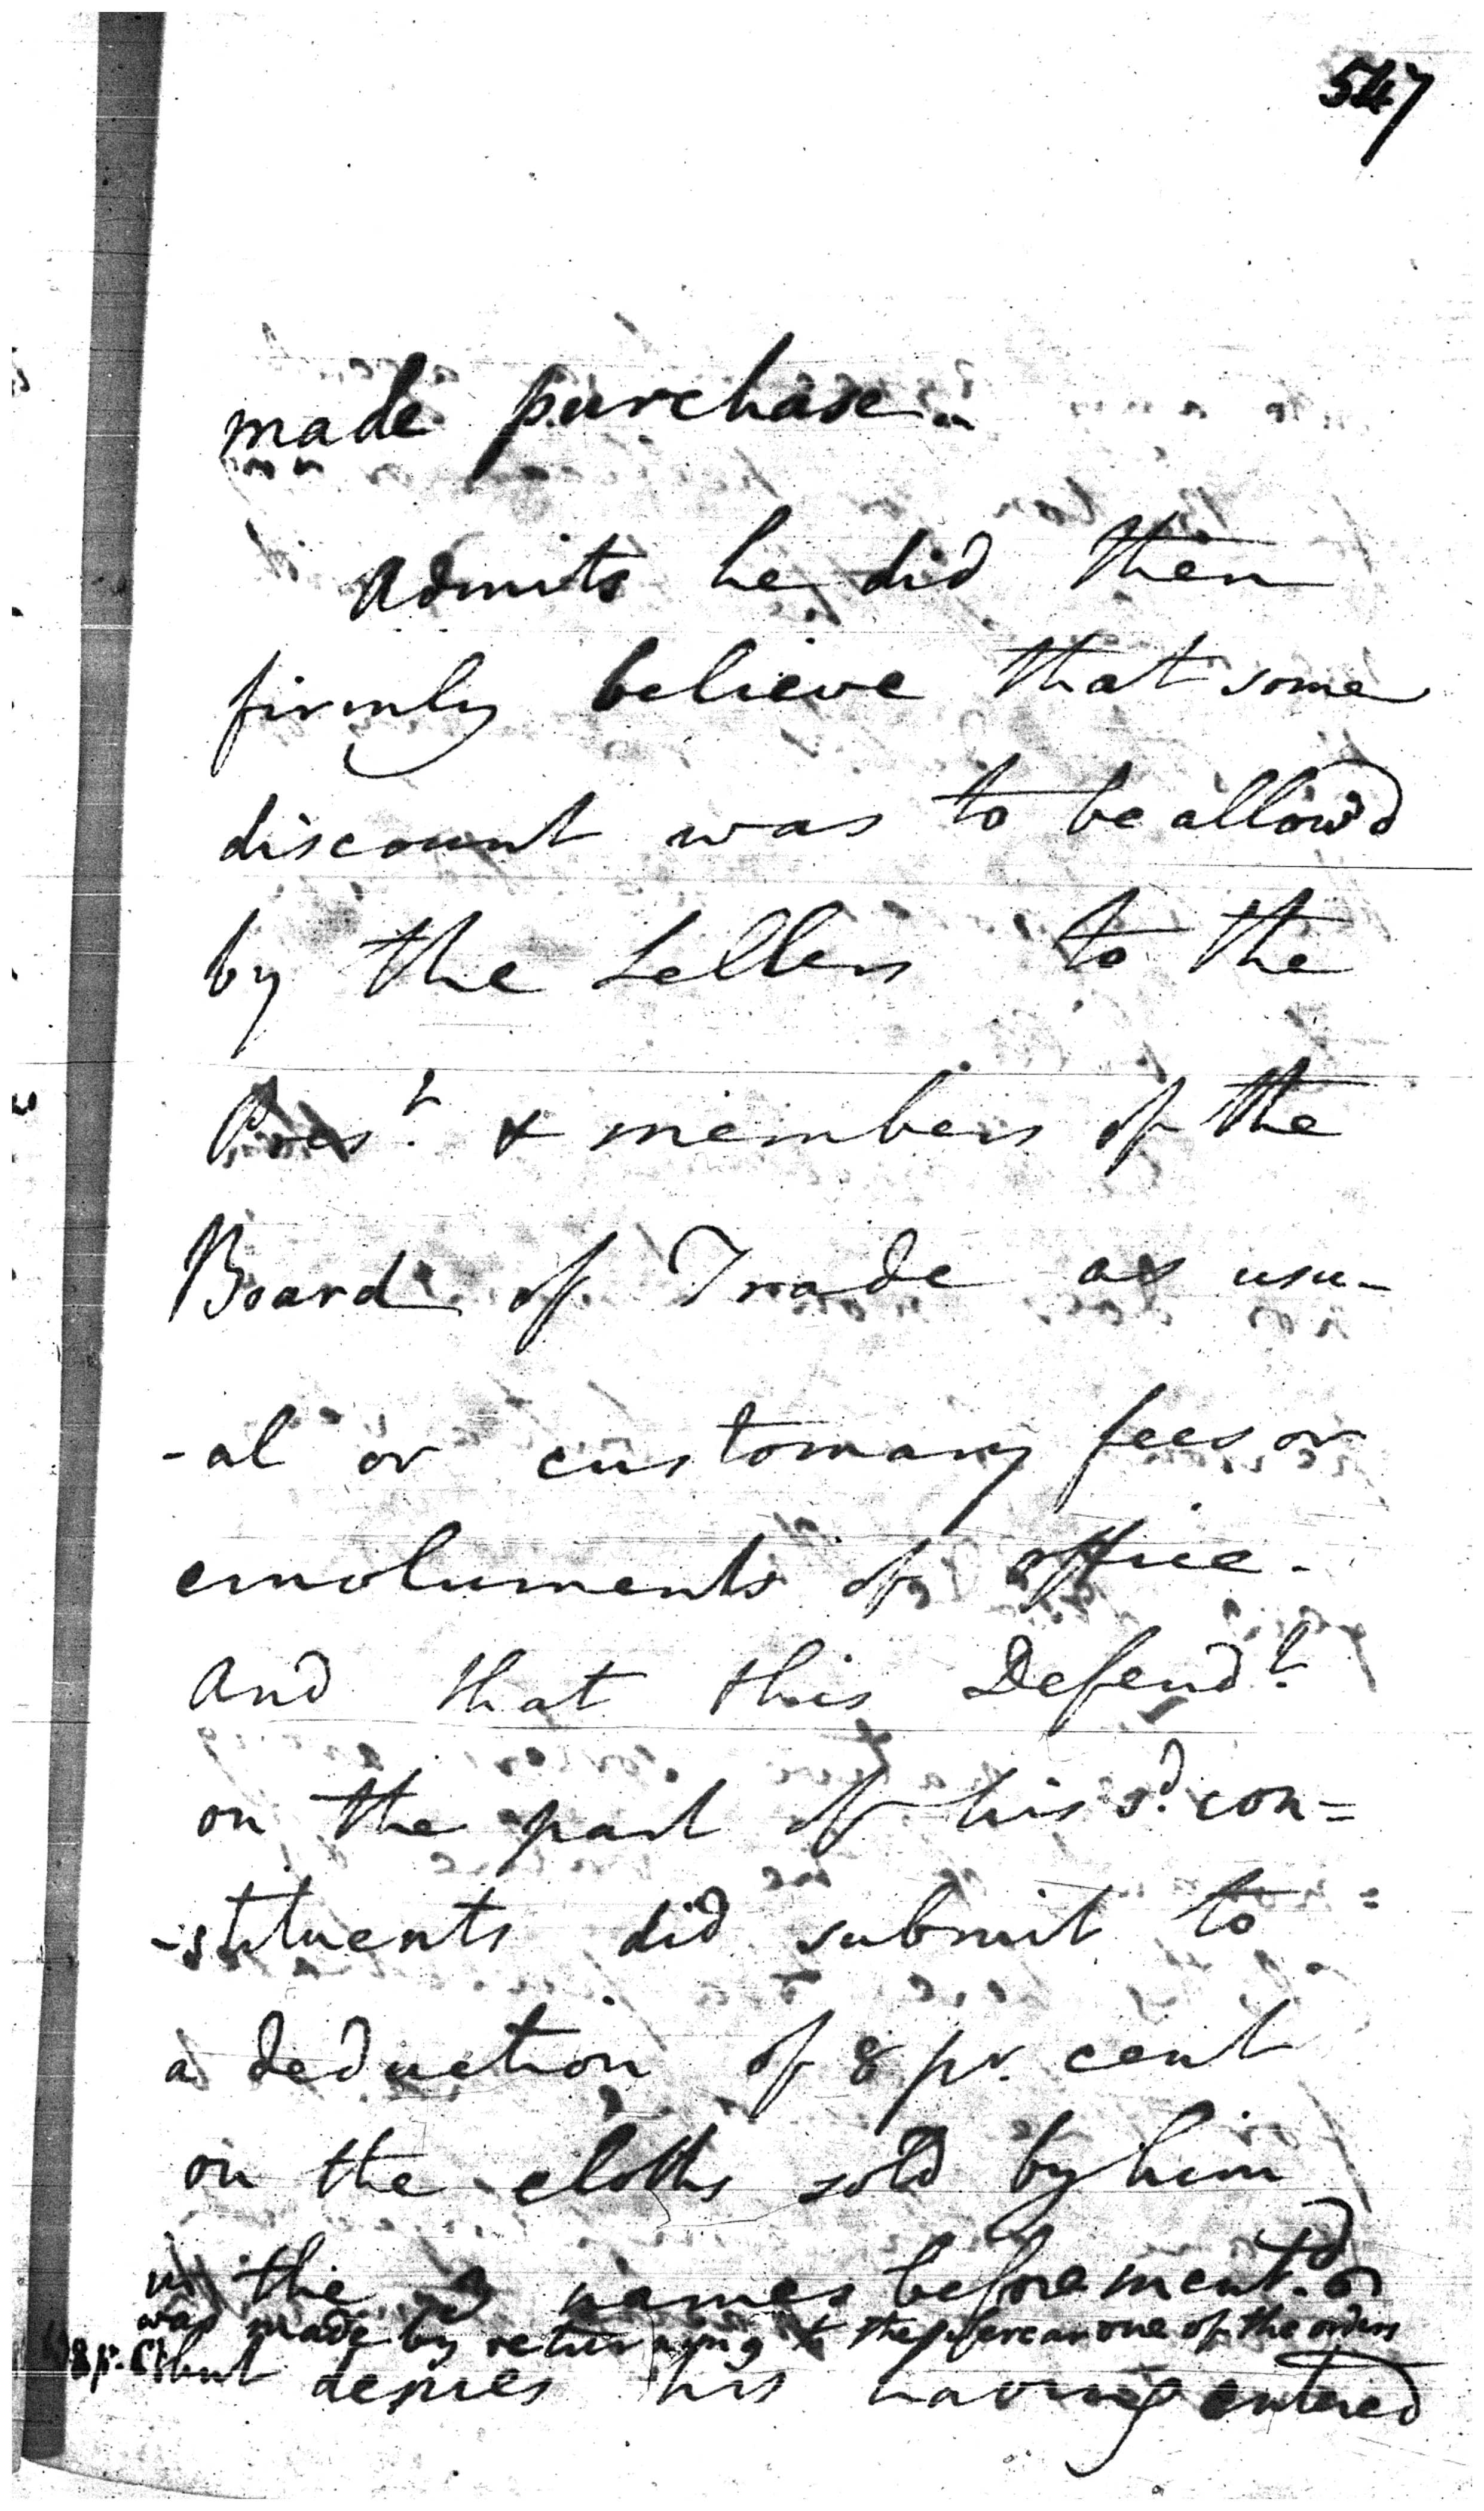 547
made purchase
Admits he did then
firmly believe that some
discount was to be allow'd
by the Sellers to the
Pres.t & members of the
Board of Trade as usu-
-al or customary fees or
emoluments of office.
And that this Defend.t
on the part of his s.d con=
-stituents did submit to
a deduction of 8 pr. cent
on the cloths sold by him
in the names before ment.d
was made by returning to the one of the orders
8 pr. Ct
but denies his having entered